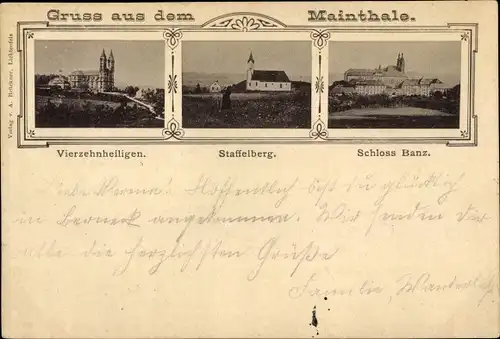 Gruss aus dem Mainthale.
Verlag v. A. Brückner, Lichtenfels
Vierzehnheiligen. Staffelberg. Schloss Banz.
Hoffentlich bist du glücklich
in Berneck angekommen. Wir senden dir
alle die herzlichsten Grüße
Familie